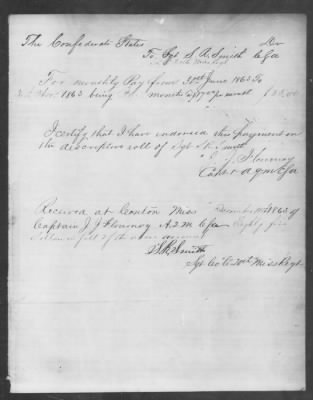 The Confederate States Dr
To Sgt S. R. Smith Co G
For monthly Pay from 30th June 1863 To
1863 being months @ $17 00 per month $ 85,00
I certify that I have endorsed this payment on
the descriptive roll of Sgt S R Smith
J J Flournoy
Capt & A Q M C S A
Received at Canton Miss December 1863 of
Captain J. J. Flournoy A.Q.M. C S A Eighty five
Dollars in full of the above account
S. R. Smith
Sgt Co Miss Regt